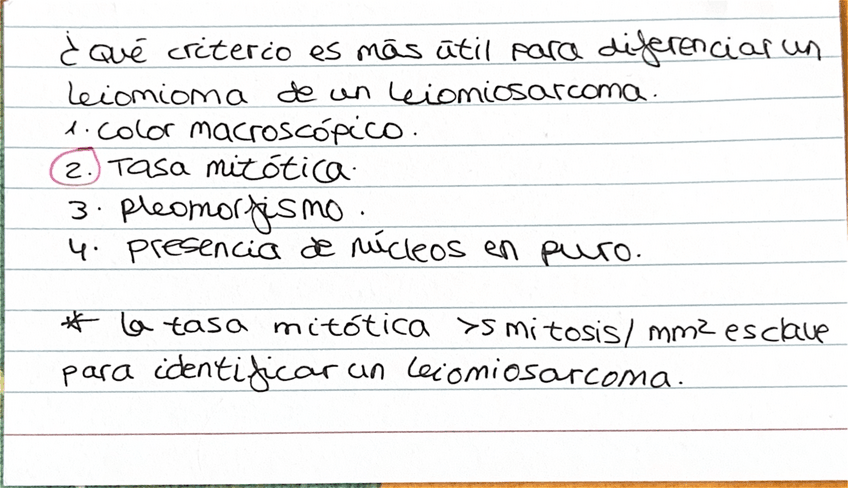 ¿Qué criterio es más útil para diferenciar un
leiomioma de un leiomiosarcoma.
1. color macroscópico.
2. Tasa mitótica.
3. pleomorfismo.
4. presencia de núcleos en puro.
* la tasa mitótica >5 mitosis/mm² es clave
para identificar un leiomiosarcoma.